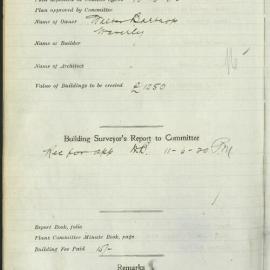 Plan approved by Committee
Name of Owner Walter Barltrop
Waverley
Name of Builder
Name of Architect
Value of Buildings to be erected £1250
Building Surveyor's Report to Committee
Rec for app 11-6-20
Report Book, folio
Plans Committee Minute Book, page
Building Fee Paid 15/-
Remarks